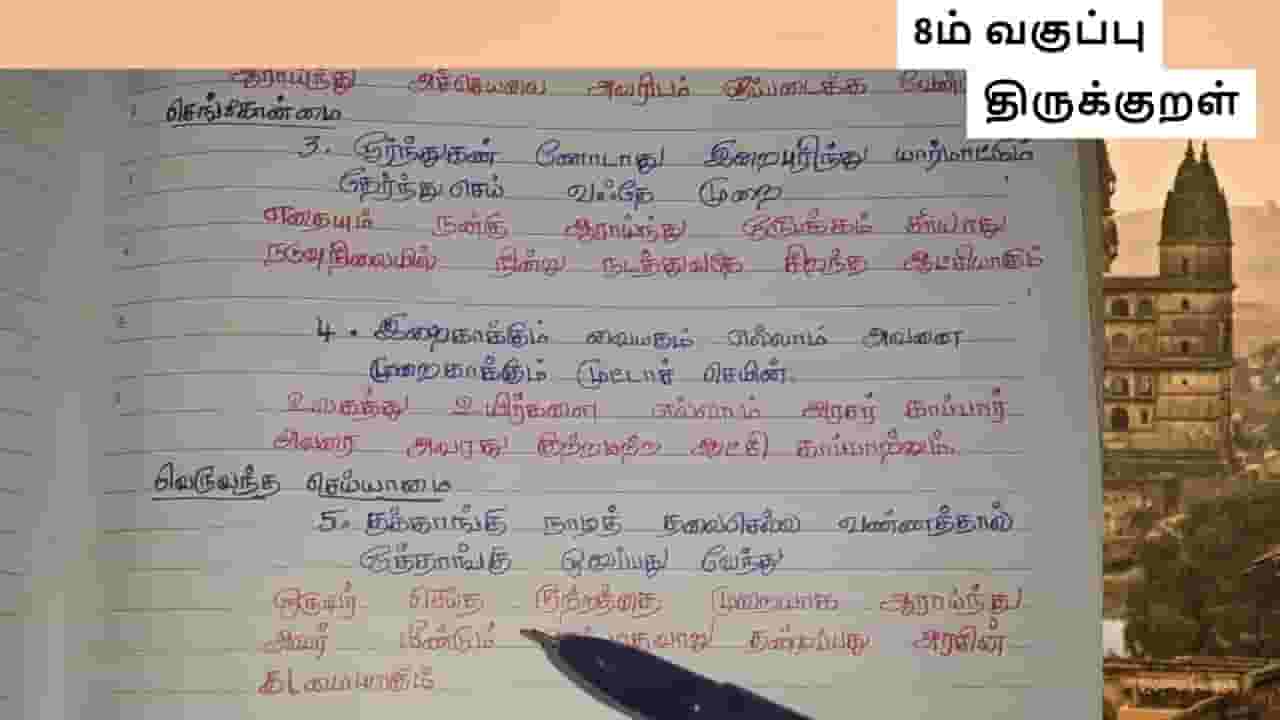 8ம் வகுப்பு
திருக்குறள்
ஆராய்ந்து அச்செயலை அவரிடம் ஒப்படைக்க வேண்
செங்கோன்மை
3. ஓர்ந்துகண் ணோடாது இறைபுரிந்து யார்மாட்டும்
தேர்ந்துசெய் வஃதே முறை
எதையும் நன்கு ஆராய்ந்து ஒருபக்கம் சாயாது
நடுவுநிலையில் நின்று நடத்துவதே சிறந்த ஆட்சியாகும்
4. இறைகாக்கும் வையகம் எல்லாம் அவனை
முறைகாக்கும் முட்டாச் செயின்.
உலகத்து உயிர்களை எல்லாம் அரசர் காப்பார்
அவரை அவரது குற்றமற்ற ஆட்சி காப்பாற்றும்.
வெருவந்த செய்யாமை
5. தக்காங்கு நாடித் தலைசெல்லா வண்ணத்தால்
ஒத்தாங்கு ஒறுப்பது வேந்து
ஒருவர் செய்த குற்றத்தை முறையாக ஆராய்ந்து
அவர் மீண்டும் தண்டிப்பது அரசின்
கடமையாகும்